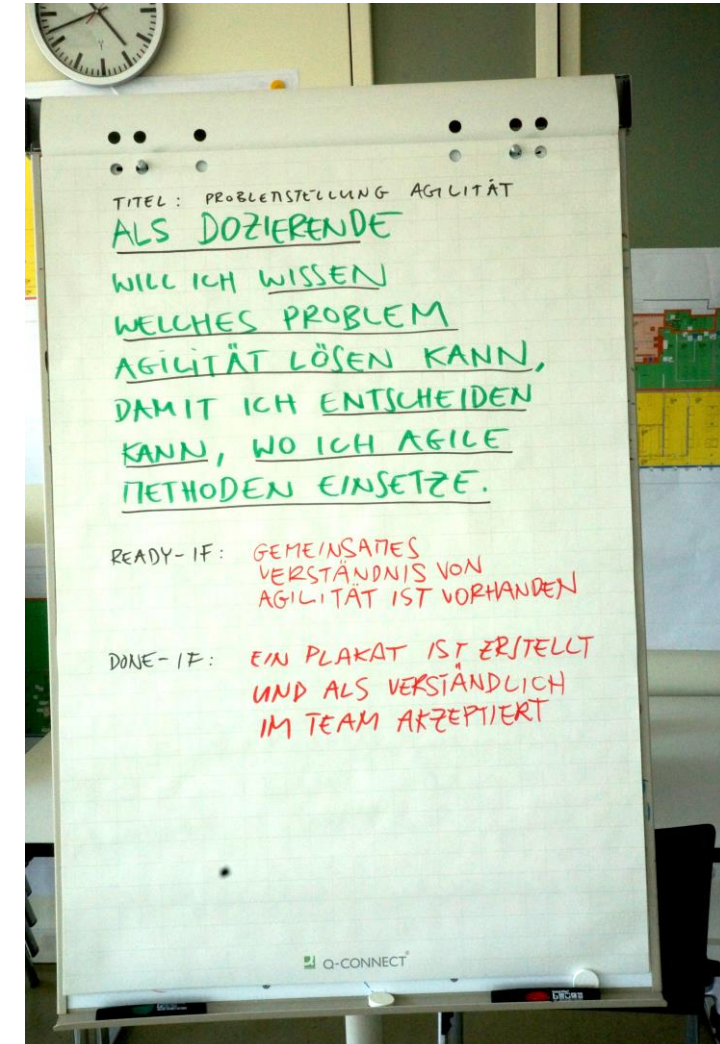 TITEL: PROBLEMSTELLUNG AGILITÄT
ALS DOZIERENDE
WILL ICH WISSEN
WELCHES PROBLEM
AGILITÄT LÖSEN KANN,
DAMIT ICH ENTSCHEIDEN
KANN, WO ICH AGILE
METHODEN EINSETZE.
READY-IF: GEMEINSAMES
VERSTÄNDNIS VON
AGILITÄT IST VORHANDEN
DONE-IF: EIN PLAKAT IST ERSTELLT
UND ALS VERSTÄNDLICH
IM TEAM AKZEPTIERT
Q-CONNECT®